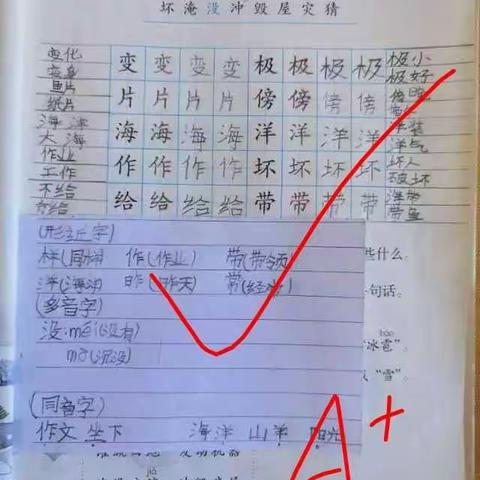 坏淹没冲毁屋灾猜
变化 变变变变极极极极 极小
变身 极好
鱼片 片片片片傍傍傍傍 傍晚
纸片
海洋 海海海海洋洋洋洋 洋装
大海 洋气
作业 作作作作坏坏坏坏 坏人
工作 破坏
不给 给给给给带带带带 海带
带鱼
(形近字)
样(同样) 作(作业) 带(带领)
洋(海洋) 昨(昨天) 常(经常)
些什么。
句话。
(多音字)
没:méi(没有)
mò(沉没)
báo
冰雹”。
“雪”。
(同音字)
作文 坐下 海洋 山羊 阳光
A+
发动机器